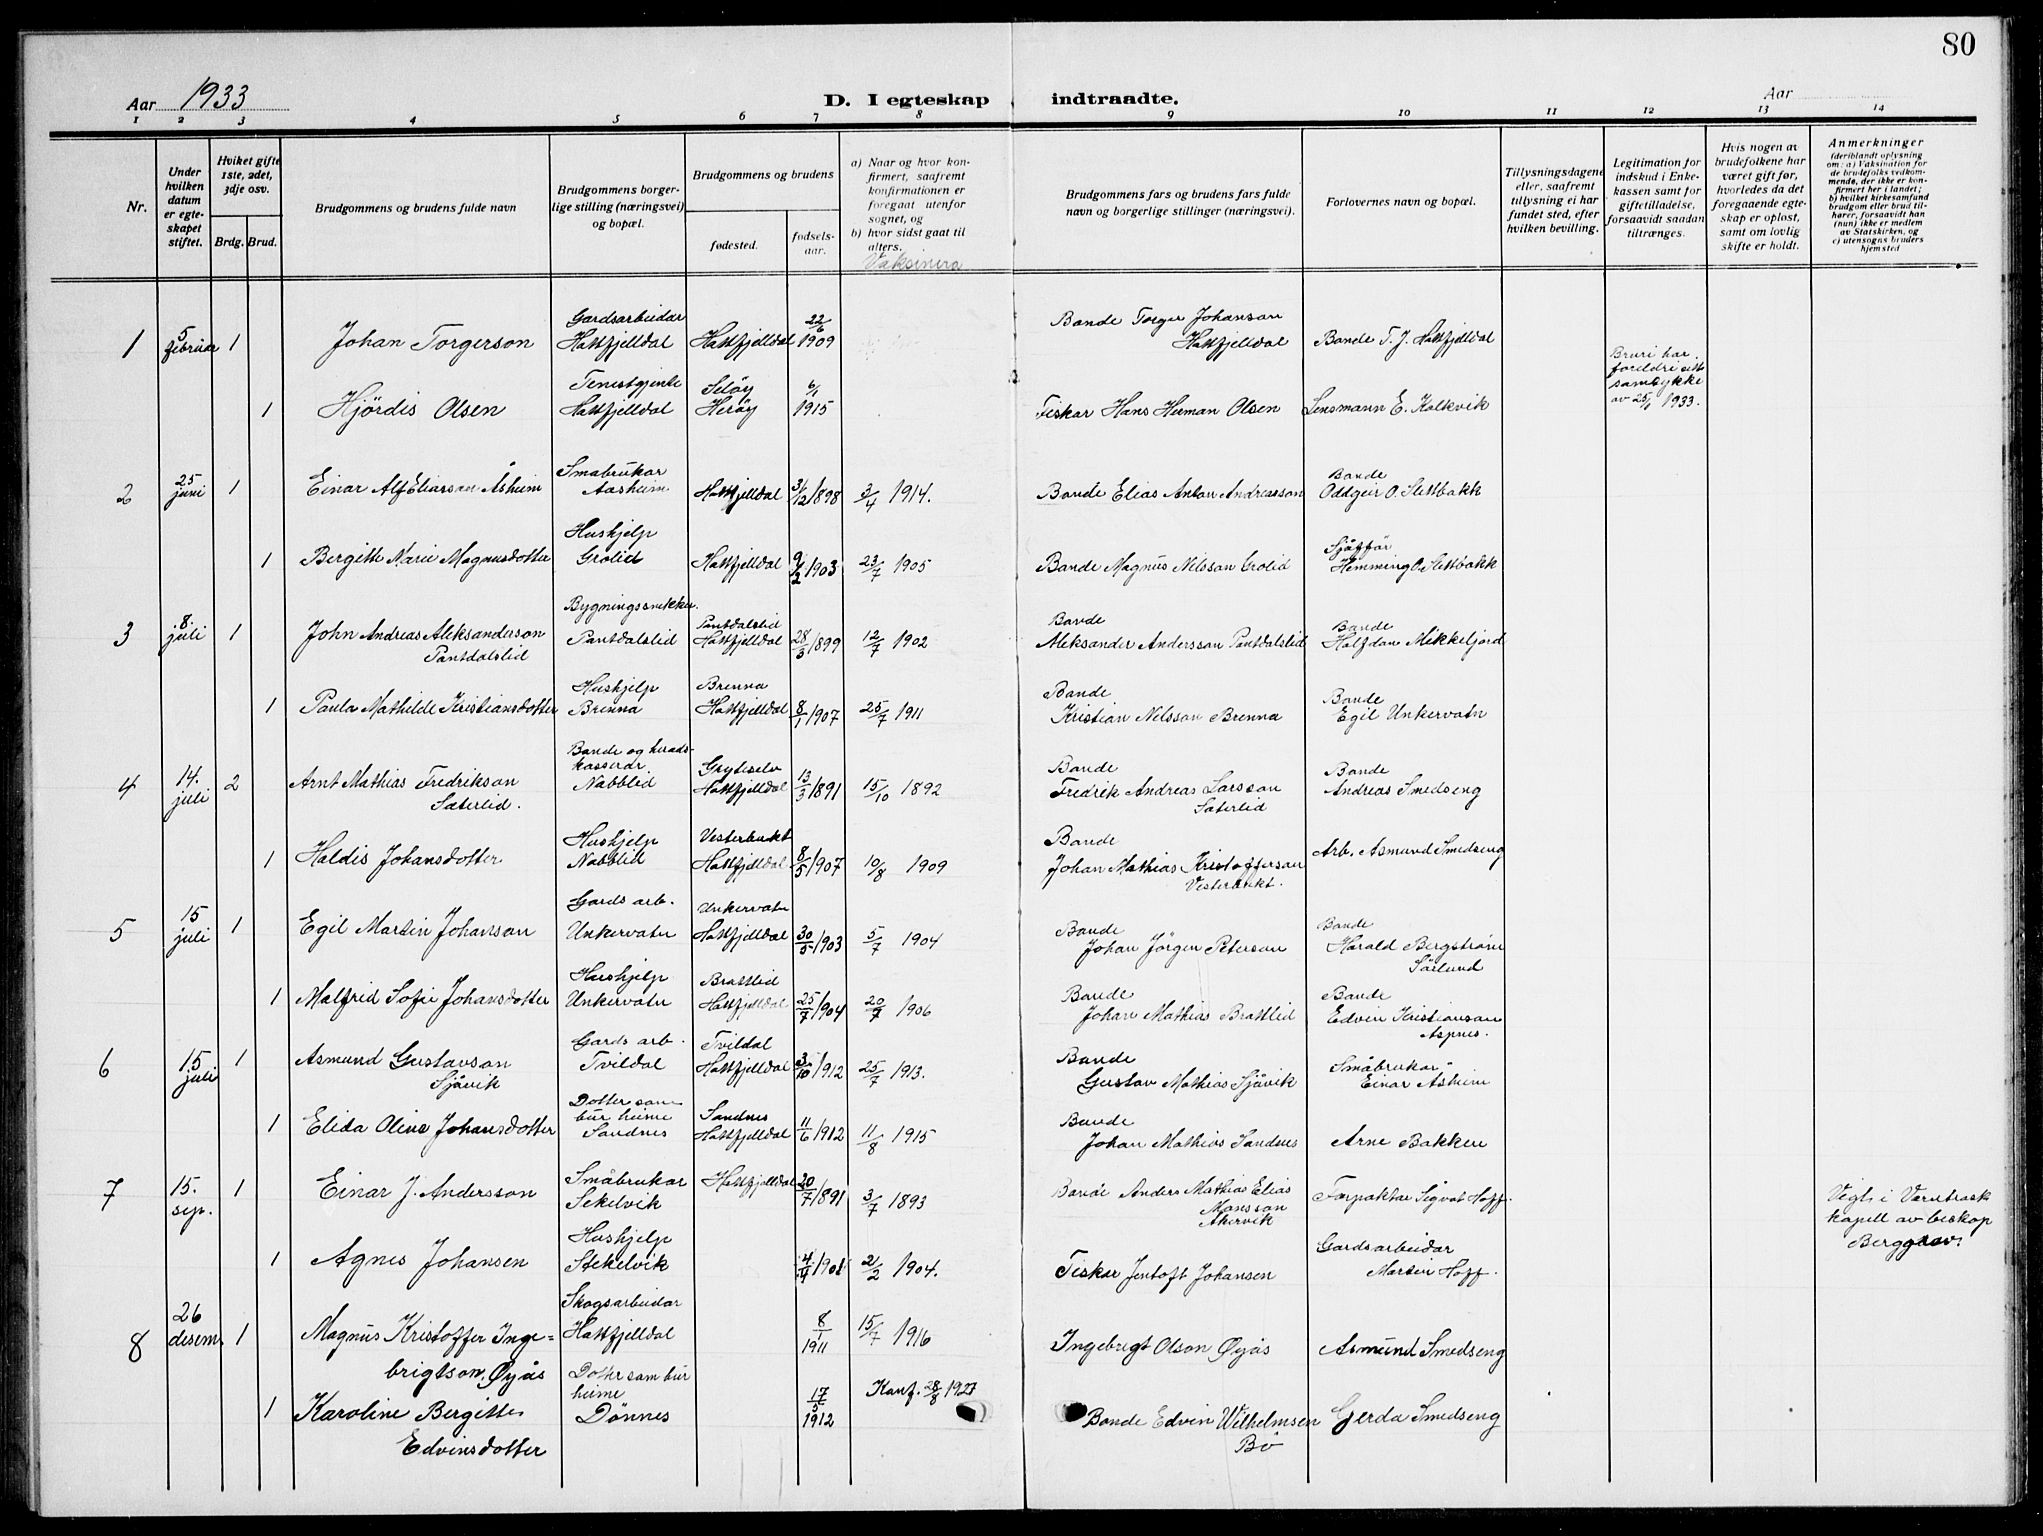 80
Aar 1933
D. I egteskap indtraadte.
Aar
1 2 3 4 5 6 7 8 9 10 11 12 13 14
Nr.
Under hvilken datum er egteskapet stiftet.
Hvilket gifte 1ste, 2det, 3dje osv.
Brdg. Brud.
Brudgommens og brudens fulde navn
Brudgommens borgerlige stilling (næringsvei) og bopæl.
Brudgommens og brudens
fødested.
fødselsaar.
a) Naar og hvor konfirmert, saafremt konfirmationen er foregaat utenfor sognet, og
b) hvor sidst gaat til alters.
Vaksinera
Brudgommens fars og brudens fars fulde navn og borgerlige stillinger (næringsvei).
Forlovernes navn og bopæl.
Tillysningsdagene eller, saafremt tillysning ei har fundet sted, efter hvilken bevilling.
Legitimation for indskud i Enkekassen samt for giftetilladelse, forsaavidt saadan tiltrænges.
Hvis nogen av brudefolkene har været gift før, hvorledes da det foregaaende egteskap er opløst, samt om lovlig skifte er holdt.
Anmerkninger
(deriblandt oplysning om: a) Vaksination for de brudefolks vedkommende, der ikke er konfirmert her i landet; b) hvilket kirkesamfund brudgom eller brud tilhører, forsaavidt han (hun) ikke er medlem av Statskirken, og c) utensogns bruders hjemsted
1 5 februar 1 Johan Torgerson Gardsarbeidar Hattfjelldal Hattfjelldal 22/6 1909 Bonde Torger Johanson Hattfjelldal Bonde T. J. Hattfjelldal
Bruri har foreldre sitt samtykke av 25/1 1933.
1 Hjördis Olsen Tenestgjente Hattfjelldal Seløy Herøy 6/1 1915 Fiskar Hans Herman Olsen Lensmann E. Kalkvik
2 25 juni 1 Einar Alf Eliasson Åsheim Småbrukar Aasheim Hattfjelldal 31/12 1898 3/4 1914. Bonde Elias Anton Andreasson Bonde Oddgeir O. Slettbakk
1 Bergitte Marie Magnusdotter Hushjelp Grolid Hattfjelldal 9/2 1903 23/7 1905 Bonde Magnus Nilsson Grolid Sjåffør Hemming O. Slettbakk
3 8. juli 1 John Andreas Aleksanderson Pantdalslid Bygningssnikker. Pantdalslid Pantdalslid Hattfjelldal 28/3 1899 12/7 1902 Bonde Aleksander Andersson Pantdalslid Bonde Halfdan Mikkeljord
1 Paula Mathilde Kristiansdotter Hushjelp Brenna Brenna Hattfjelldal 8/1 1907 25/7 1911 Bonde Kristian Nilsson Brenna Bonde Egil Unkervatn
4 14. juli 2 Arnt Mathias Fredrikson Sæterlid. Bonde og heradskasserar Nabblid Gryteselv Hattfjelldal 13/3 1891 15/10 1892 Bonde Fredrik Andreas Larsson Sæterlid Bonde Andreas Smedseng
1 Haldis Johansdotter Hushjelp Nabblid Vesterbukt Hattfjelldal 8/5 1907 10/8 1909 Bonde Johan Mathias Kristofferson Vesterbukt. Arb. Asmund Smedseng
5 15 juli 1 Egil Martin Johanson Gards arb. Unkervatn Unkervatn Hattfjelldal 30/5 1903 5/7 1904 Bonde Johan Jörgen Peterson Bonde Harald Bergström Sörlund
1 Malfrid Sofie Johansdotter Hushjelp Unkervatn Brattlid Hattfjelldal 25/7 1904 20/7 1906 Bonde Johan Mathias Brattlid Bonde Edvin Kristianson Aspnes.
6 15. juli 1 Asmund Gustavson Sjåvik Gards arb. Tvildal Tvildal Hattfjelldal 3/10 1912 25/7 1913. Bonde Gustav Mathias Sjåvik Småbrukar Einar Asheim
1 Elida Oline Johansdotter Dotter som bur heime Sandnes Sandnes Hattfjelldal 11/6 1912 11/8 1915 Bonde Johan Mathias Sandnes Arne Bakken
7 15. sep. 1 Einar J. Andersson Småbrukar Sekelvik Hattfjelldal 20/7 1891 3/7 1893 Bonde Anders Mathias Elias Mansson Akervik Forpaktar Sigvat Hoff.
Vigt i Varntresk kapell av biskop Berggrav.
1 Agnes Johansen Hushjelp Stekelvik 2/2 1904. Fiskar Jentoft Johansen Gardsarbeidar Martin Hoff.
8 26 desem. 1 Magnus Kristoffer Ingebrigtson Øyås Skogsarbeidar Hattfjelldal 8/1 1911 15/7 1916 Ingebrigt Olson Øyås Asmund Smedseng
1 Karoline Bergitte Edvinsdotter Dotter som bur heime Dønnes 17/5 1912 Konf. 28/8 1927 Bonde Edvin Wilhelmsen Bö Gerda Smedseng